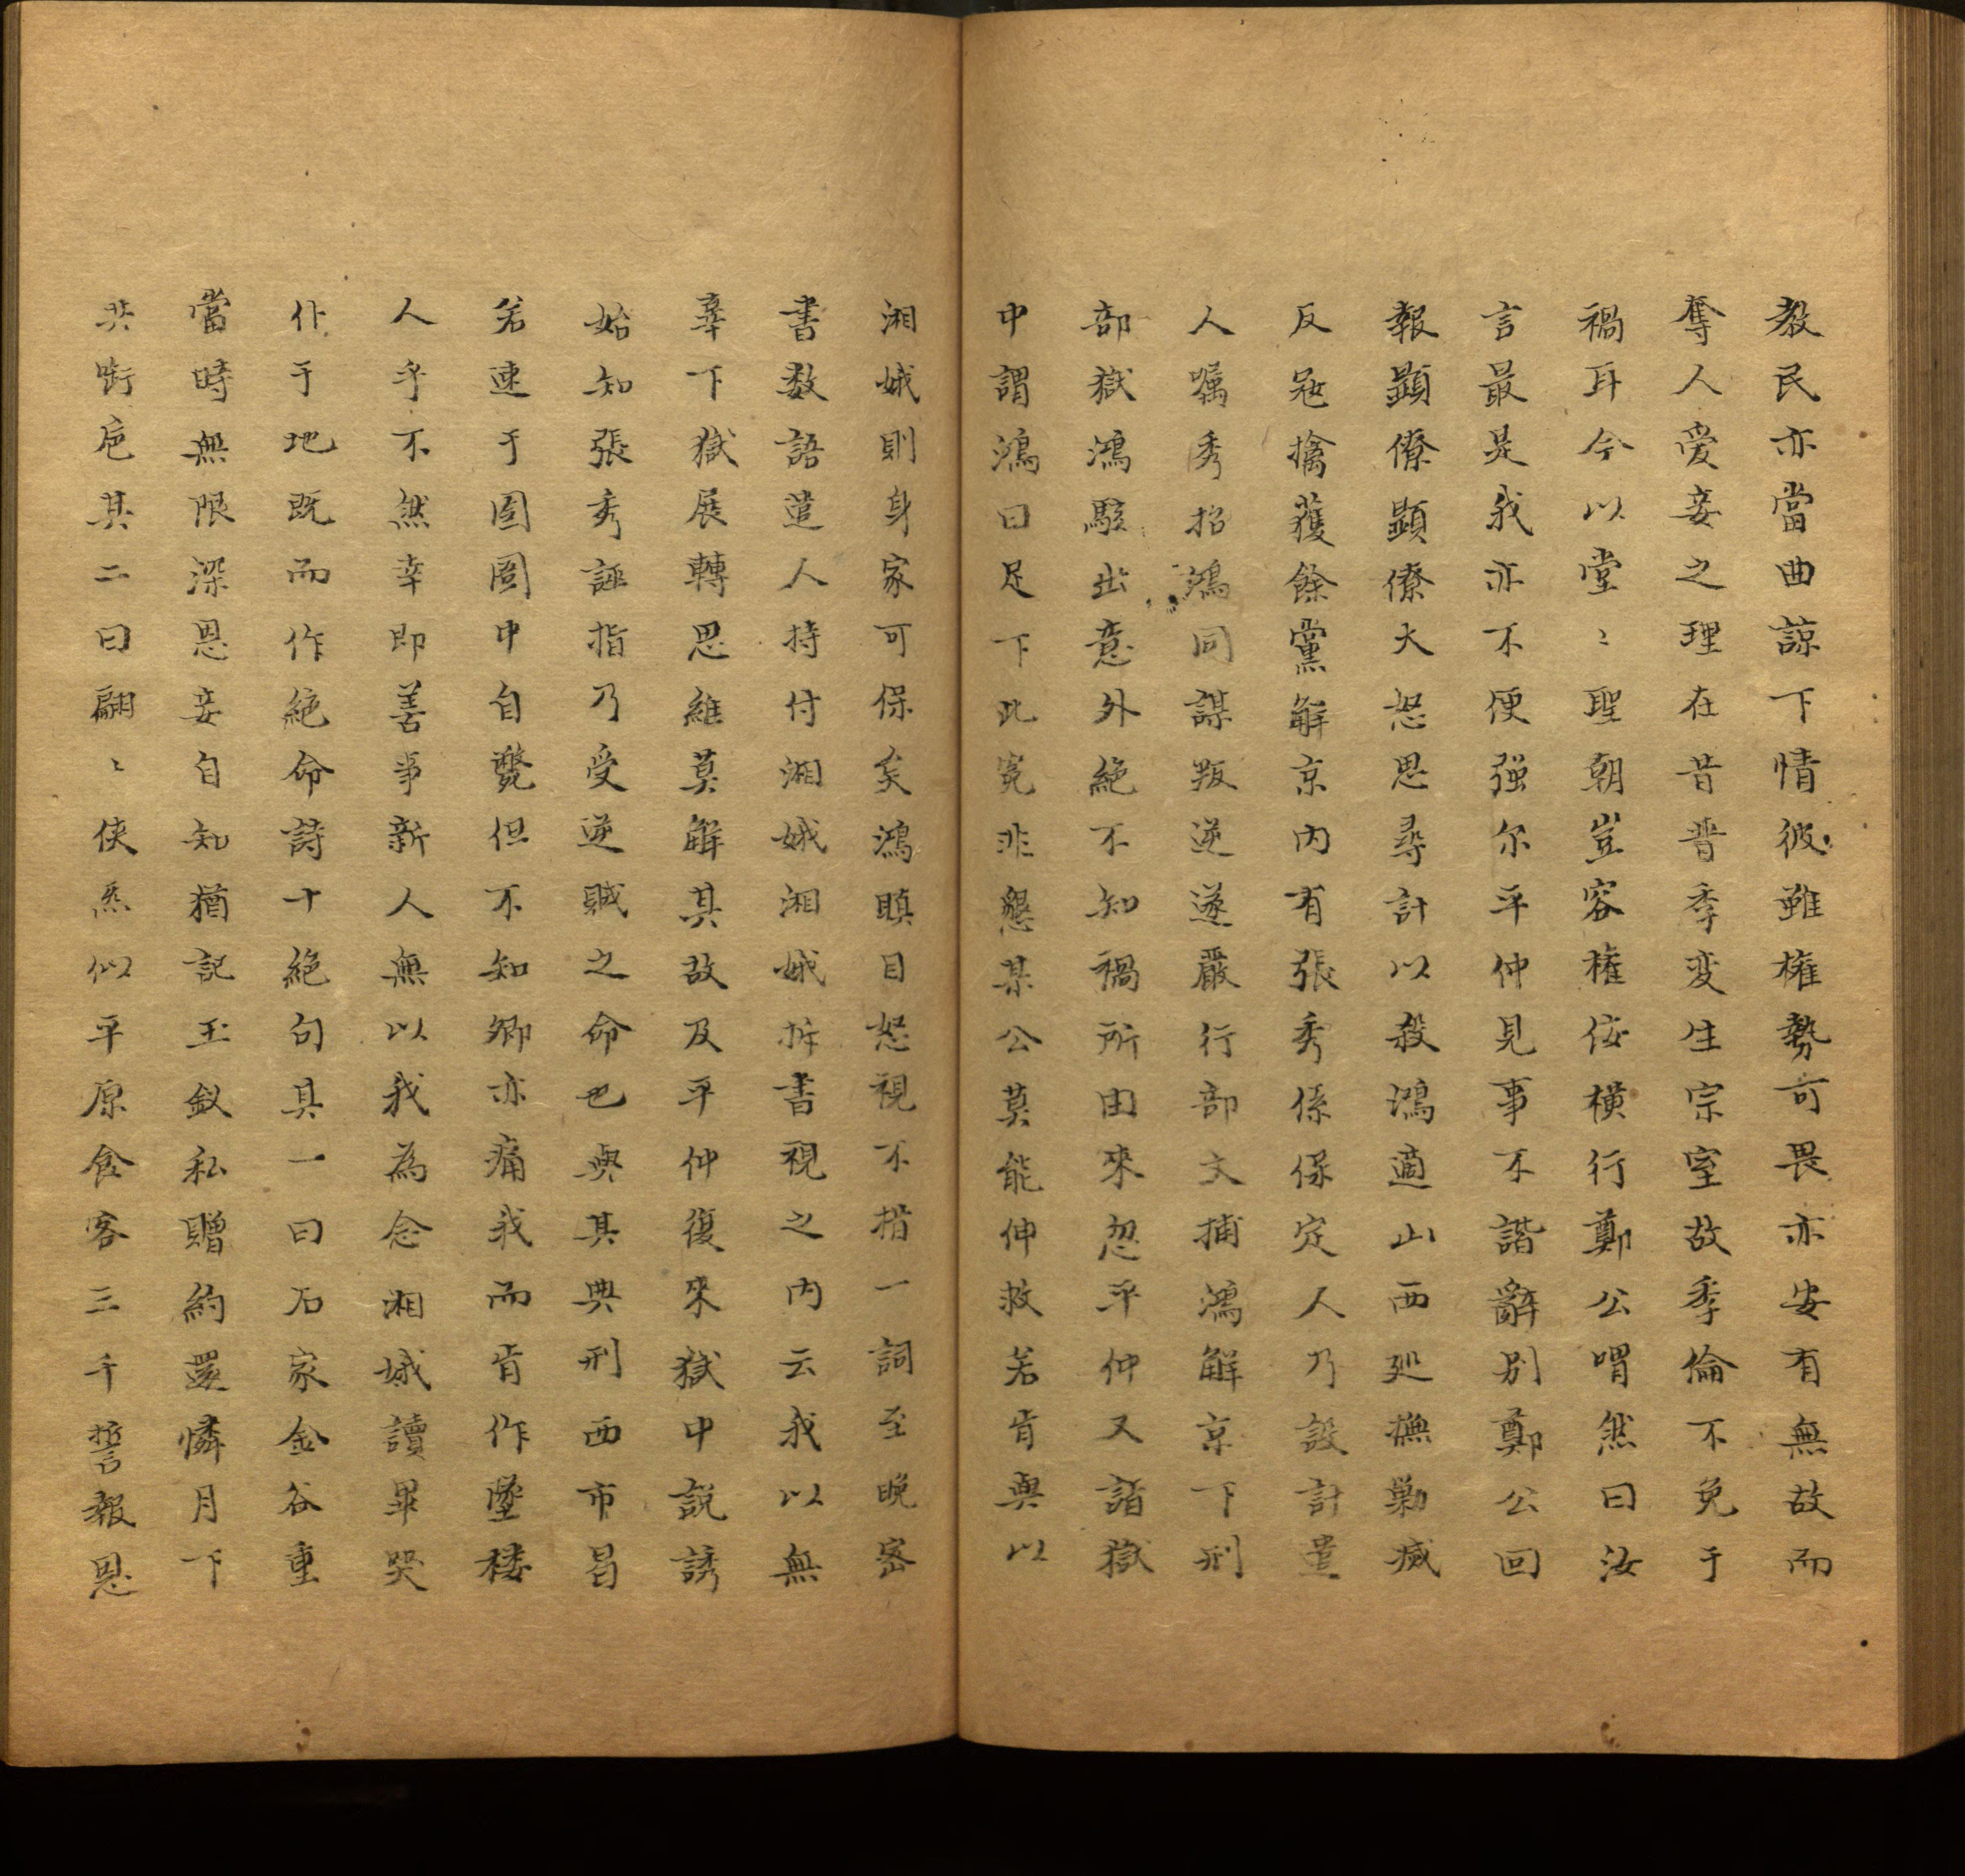 教民亦當曲諒下情彼雖權勢可畏亦安有無故而
奪人愛妾之理在昔晋季变生宗室故季倫不免于
禍耳今以堂〻聖朝豈容權侫横行鄭公喟然曰汝
言最是我亦不便强尔平仲見事不諧辭别鄭公回
報顯僚顯僚大怒思尋計以殺鴻適山西廵撫勦滅
反冦擒獲餘黨解京内有張秀係保定人乃設計遣
人囑秀招鴻同謀叛逆遂嚴行部文捕鴻解京下刑
部獄鴻駭出意外絶不知禍所由來忽平仲又詣獄
中謂鴻曰足下此寃非懇某公莫能伸救若肯與以
湘娥則身家可保矣鴻瞋目怒視不措一詞至晚密
書数語遣人持付湘娥湘娥拆書視之内云我以無
辜下獄展轉思維莫解其故及平仲復來獄中説誘
始知張秀誣指乃受逆賊之命也與其典刑西市曷
若速于囹圄中自斃但不知卿亦痛我而肯作墜楼
人乎不然幸即善事新人無以我為念湘娥讀畢哭
仆于地既而作絶命詩十絶句具一曰石家金谷重
當時無限深恩妾自知猶記玉釵私贈約還憐月下
共啣巵其二曰翩〻俠㤠似平原食客三千誓報恩